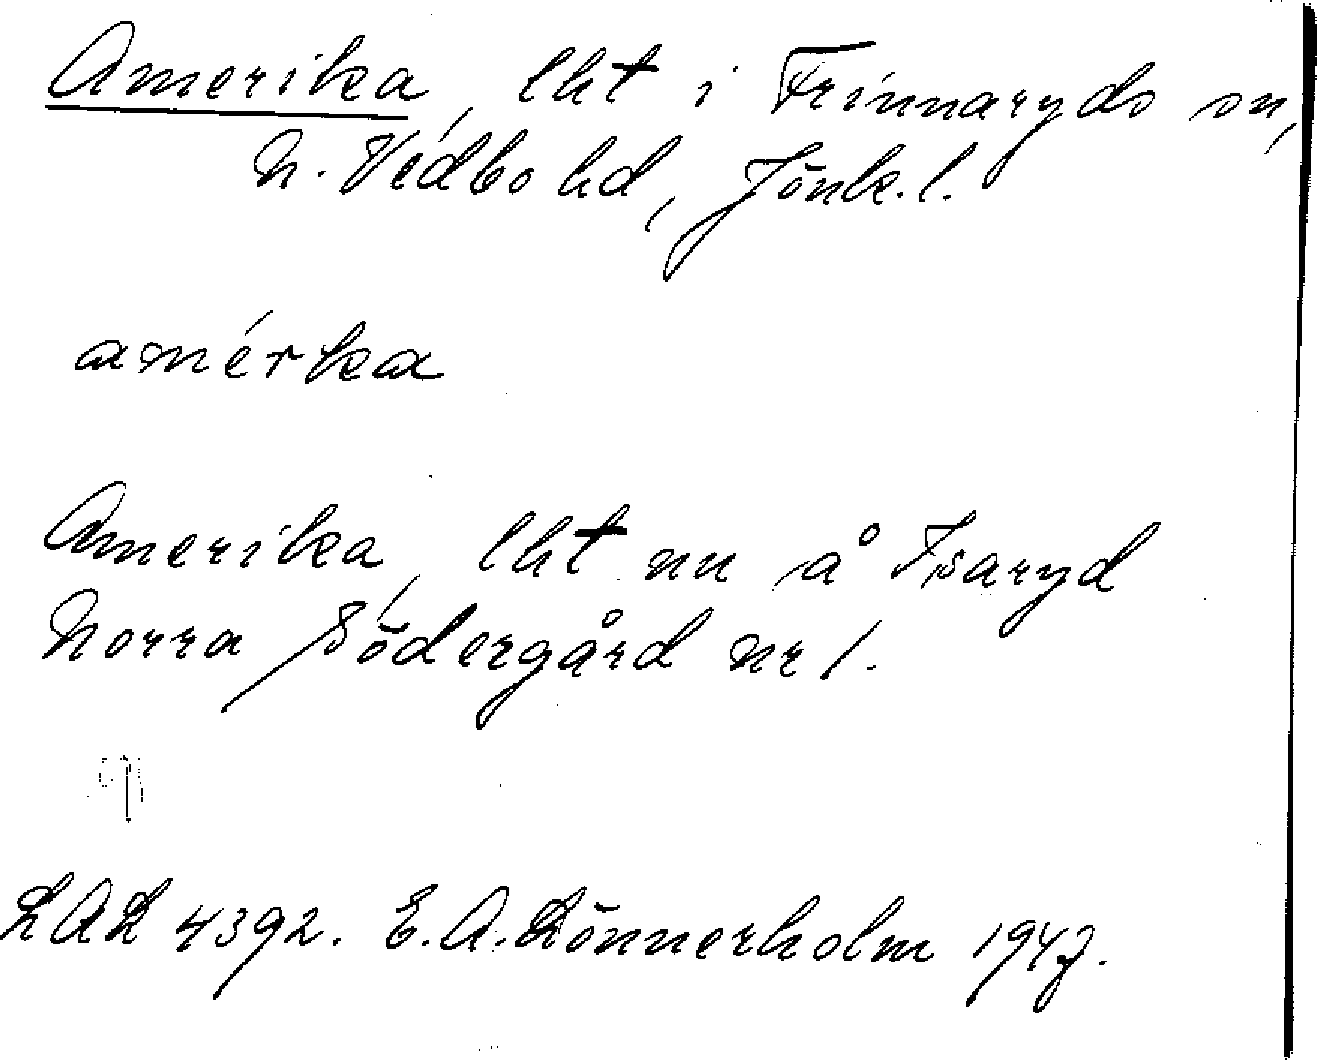 Amerika, lht i Frinnaryds sn,
N. Vedbo hd, Jönk. l.
amérka
Amerika, lht nu å Isaryd
Norra Södergård nr 1.
LAL 4392. E. A. Lönnerholm 1947.